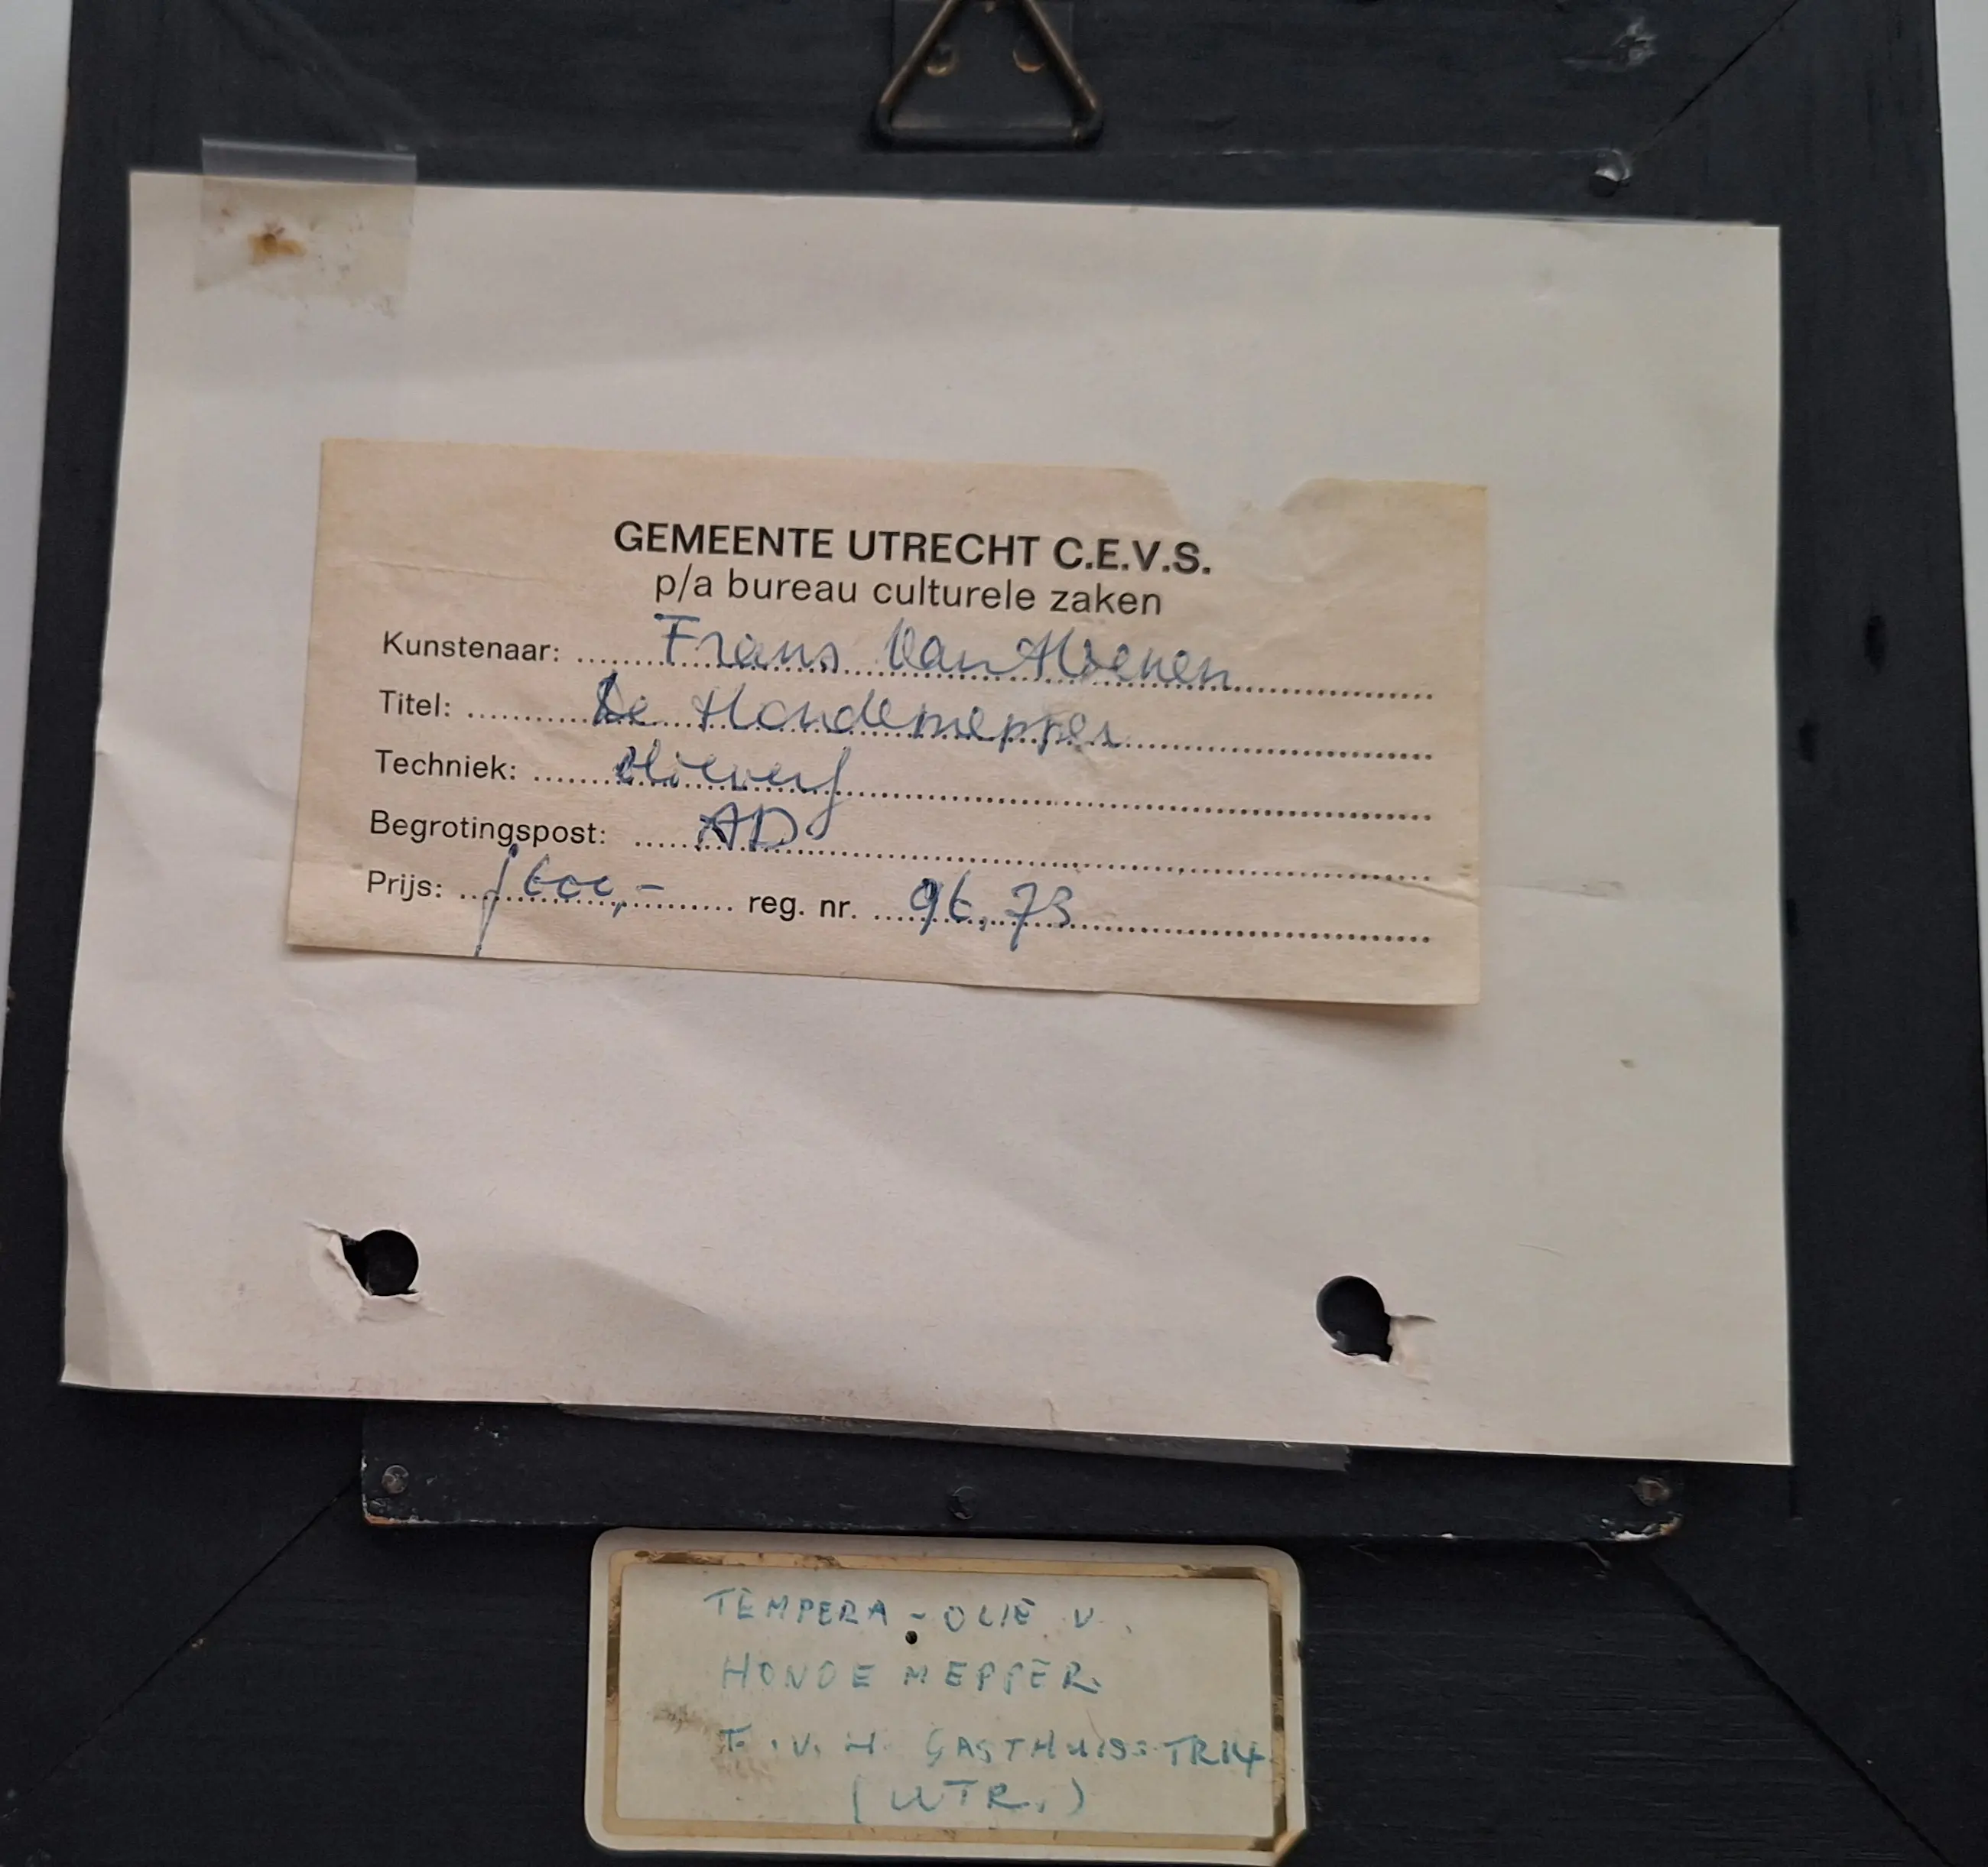 GEMEENTE UTRECHT C.E.V.S.
p/a bureau culturele zaken
Kunstenaar: Frans Van Hoenen
Titel: De Hondemepper
Techniek: olieverf
Begrotingspost: AD
Prijs: f 600,- reg. nr. 96.73
TEMPERA - OLIE V.
HONDEMEPPER.
F. V. H. GASTHUISSTR 14
(UTR.)